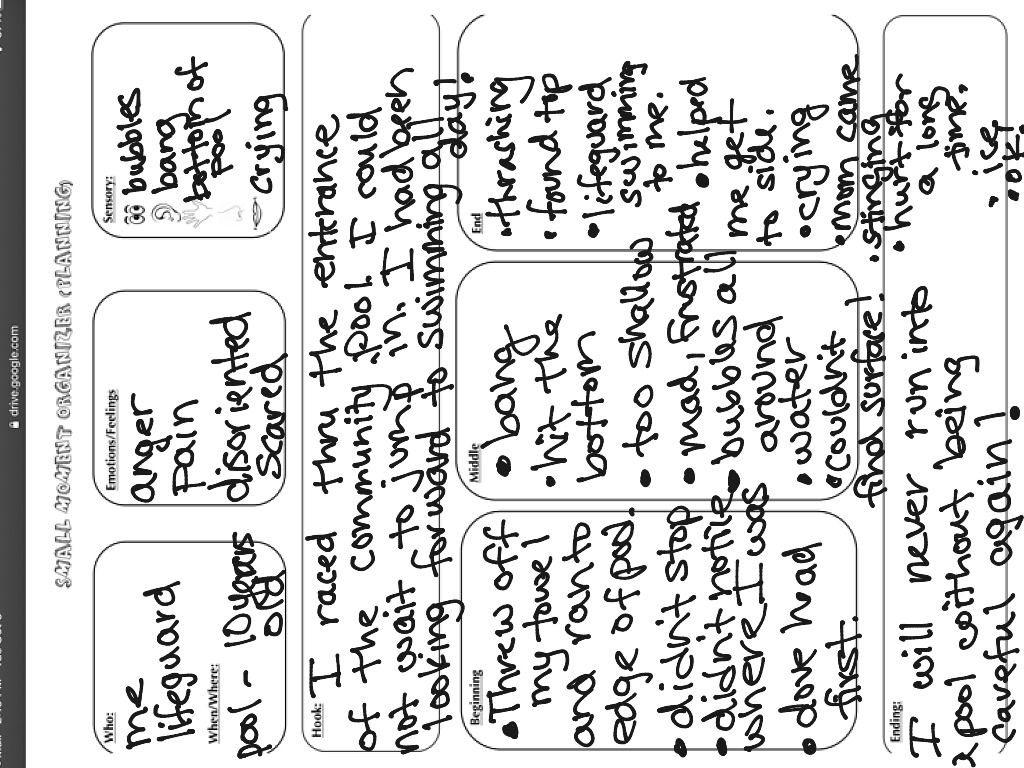 drive.google.com
SMALL MOMENT ORGANIZER (PLANNING)
Who:
me
lifeguard
When/Where:
pool - 10 years
old
Emotions/Feelings
anger
Pain
disoriented
Scared
Sensory:
bubbles
bang
bottom of
pool
crying
Hook: I raced thru the entrance
of the community pool. I could
not wait to jump in. I had been
looking forward to swimming all
day!
Beginning
• Threw off
my towel
and ran to
edge of pool.
• didn't stop
• didn't notice
where I was
• dove head
first.
Middle
• bang
• hit the
bottom
• too shallow
• mad, frustrated
• bubbles all
around
• water
• couldn't
find surface!
End
• thrashing
• found top
• lifeguard
swimming
to me.
• helped
me get
to side.
• crying
• mom came
• stinging
• hurt for
a long
time.
• ice
• ok!
Ending:
I will never run into
a pool without being
careful again!